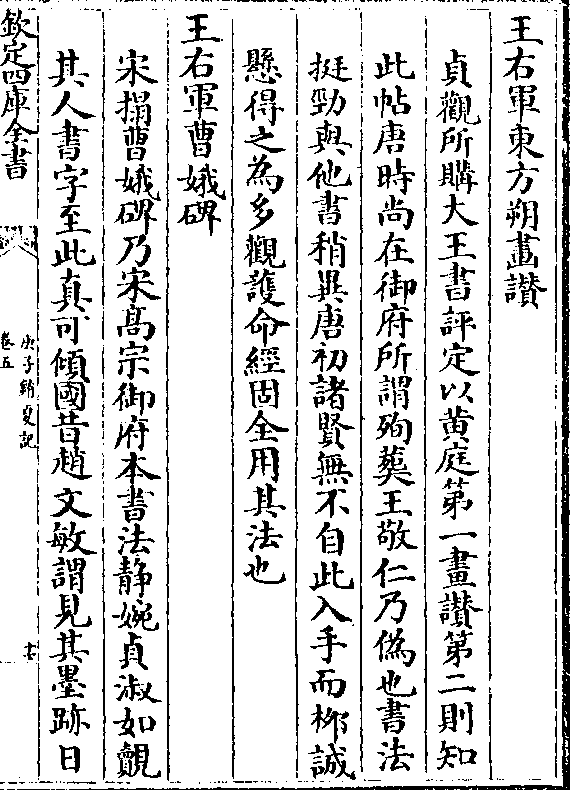 王右軍東方朔畫讚
貞觀所購大王書評定以黄庭第一畫讚第二則知
此帖唐時尚在御府所謂殉葬王敬仁乃僞也書法
挺勁與他書稍異唐初諸賢無不自此入手而栁誠
懸得之為多觀護命經固全用其法也
王右軍曹娥碑
宋搨曹娥碑乃宋髙宗御府本書法静婉貞淑如覿
其人書字至此真可傾國昔趙文敏謂見其墨跡日
欽定四庫全書
庚子銷夏記
卷五